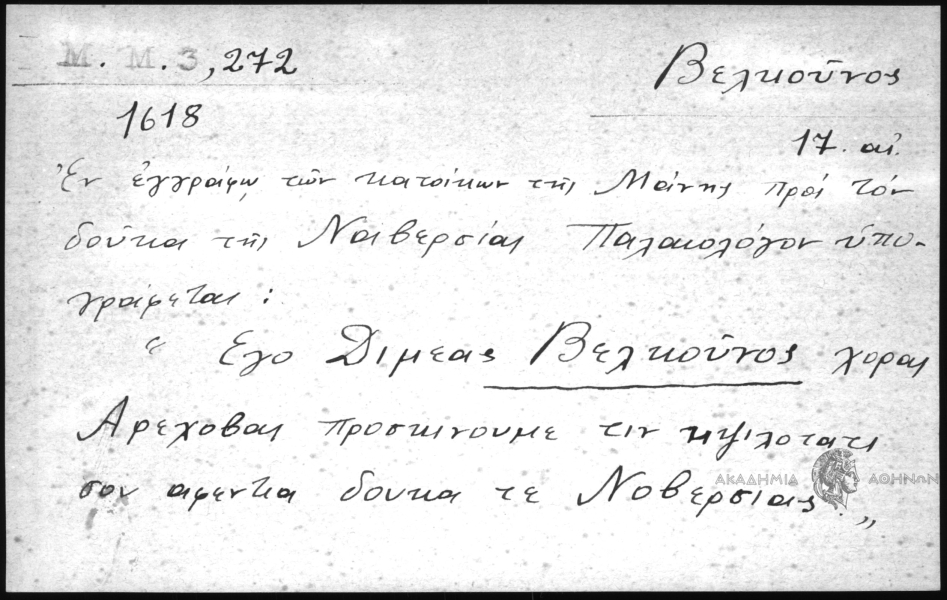 Μ. Μ. 3, 272
Βελκοῦνος
1618
17. αἰ.
Ἐν ἐγγράφῳ τῶν κατοίκων τῆς Μάνης πρὸς τόν
δούκα τῆς Ναιβερσίας Παλαιολόγον ὑπο-
γράφεται:
" Εγο Διμεας Βελκοῦνος χορας
Αρεχοβας προσκινουμε τιν ηψιλοτατι
σου αφεντια δουκα τε Νοβερσιας. "
ΑΚΑΔΗΜΙΑ ΑΘΗΝΩΝ